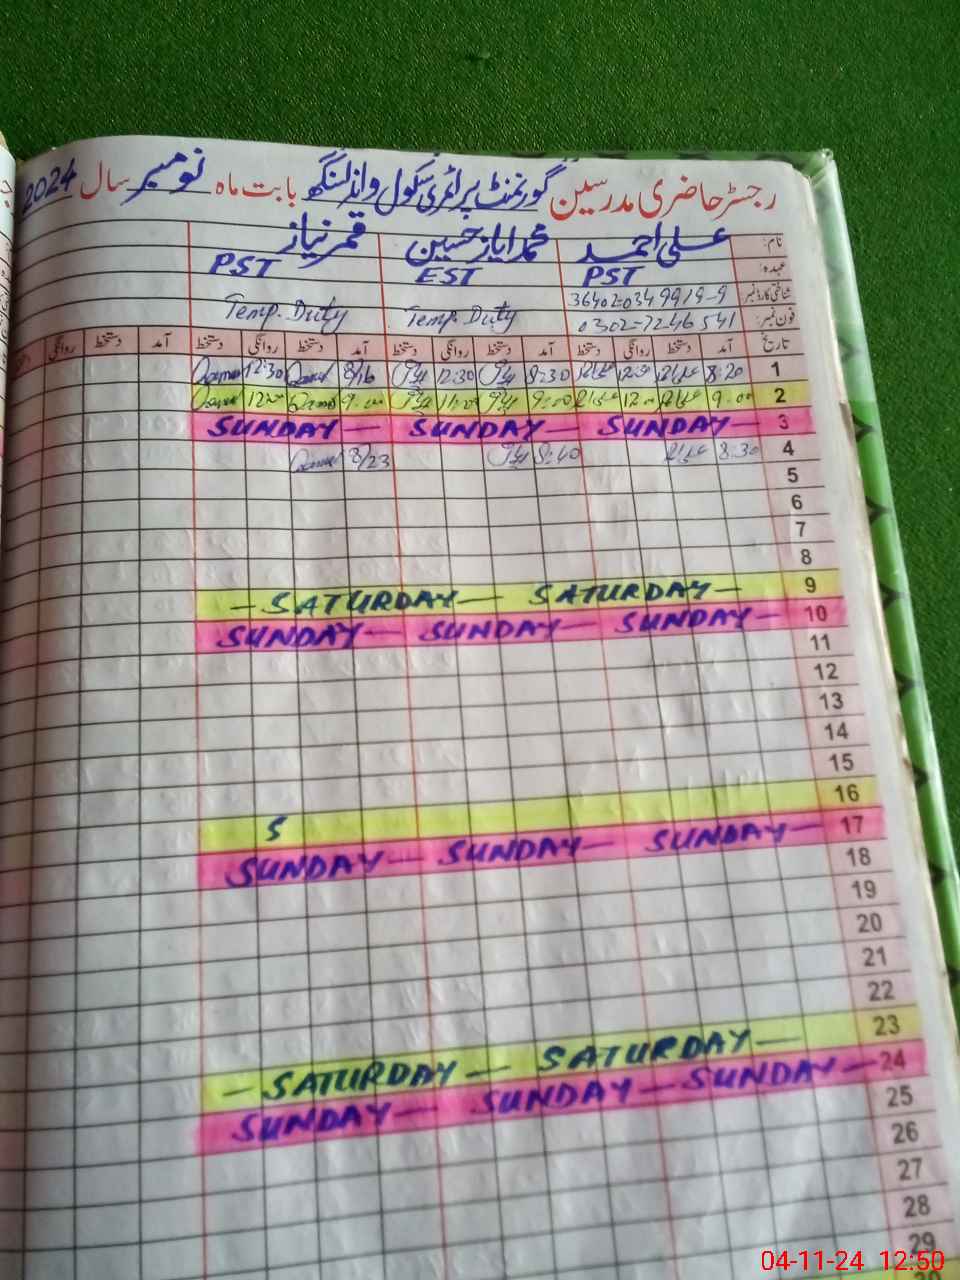 رجسٹر حاضری مدرسین گورنمنٹ پرائمری سکول واندلسنگھ بابت ماہ نومبر سال 2024
نام: علی احمد محمد ایاز حسین قمر نیاز
عہدہ: PST EST PST
شناختی کارڈ نمبر: 36402-0349919-9 Temp. Duty Temp. Duty
فون نمبر: 0302-7246541
تاریخ آمد دستخط روانگی دستخط آمد دستخط روانگی دستخط آمد دستخط روانگی دستخط آمد دستخط روانگی
1 8:20 8:30 12:30 8/16 12:30
2 9:00 12:00 9:00 9:00
3 SUNDAY — SUNDAY — SUNDAY —
4 8:30 8:40 8/23
5
6
7
8
9 — SATURDAY — SATURDAY —
10 SUNDAY — SUNDAY — SUNDAY —
11
12
13
14
15
16 S
17 SUNDAY — SUNDAY — SUNDAY —
18
19
20
21
22
23 — SATURDAY — SATURDAY —
24 SUNDAY — SUNDAY — SUNDAY —
25
26
27
28
29
04-11-24 12:50